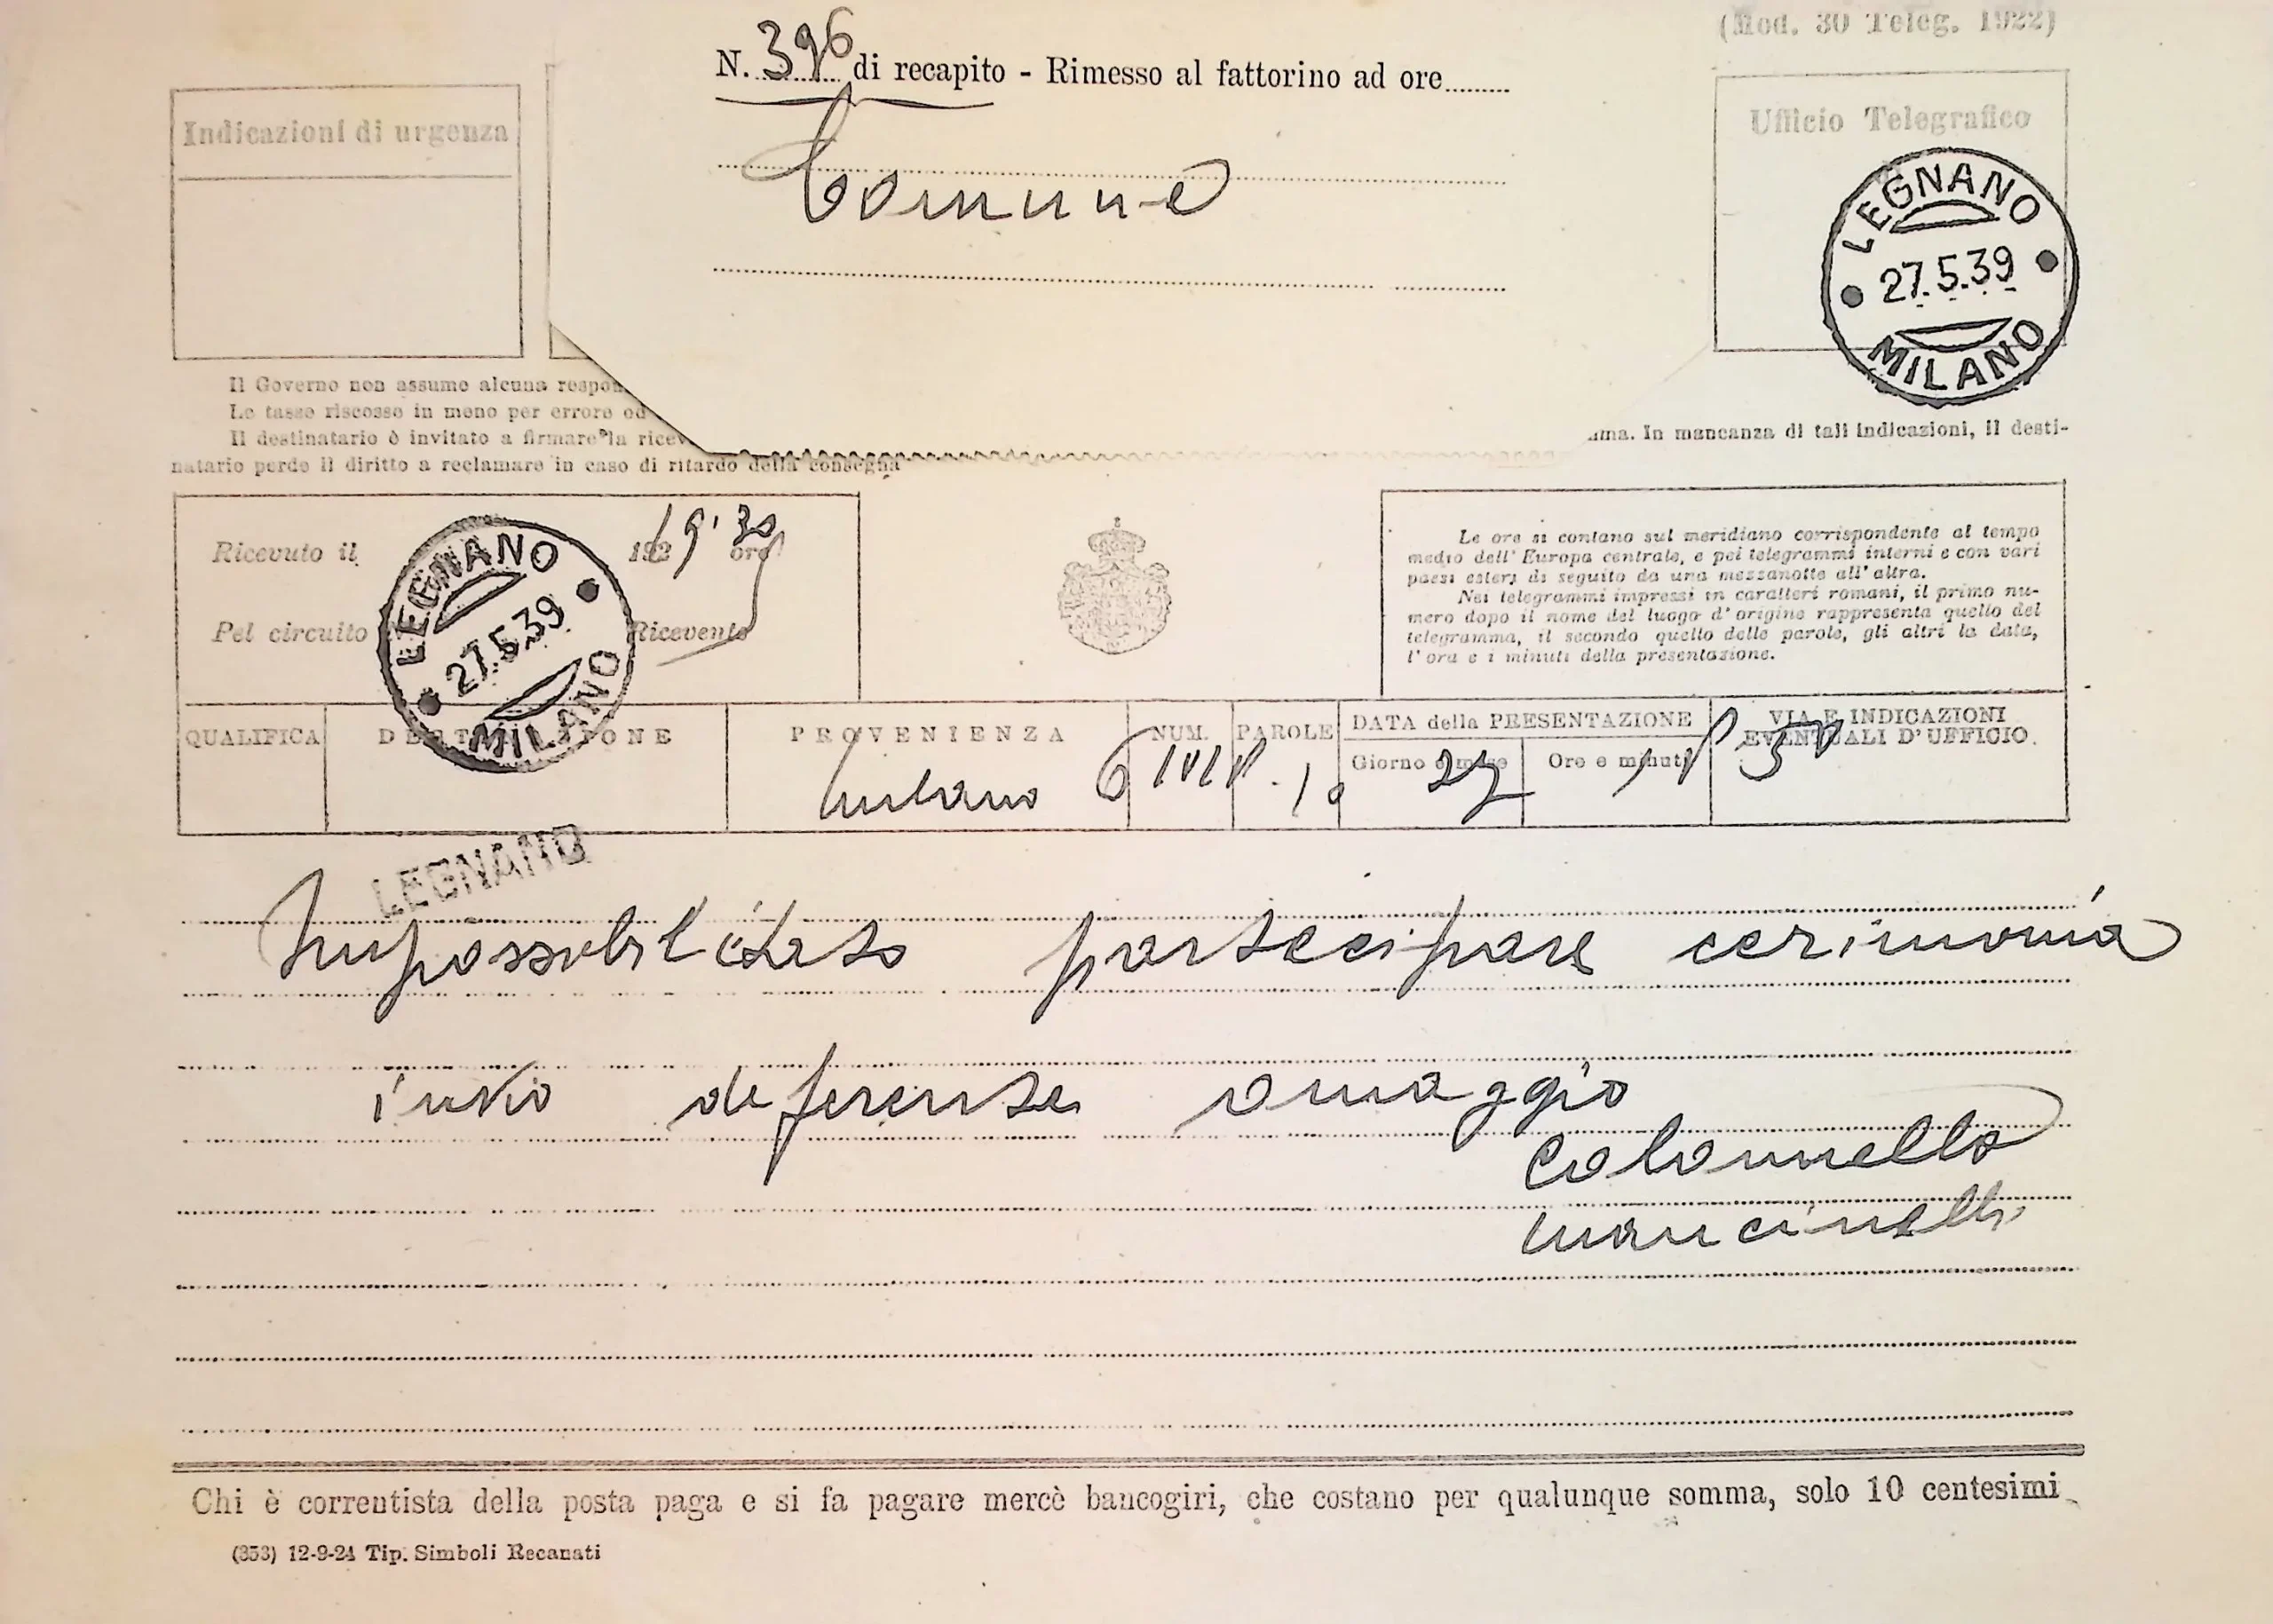 (Mod. 30 Teleg. 1922)
N. 396 di recapito - Rimesso al fattorino ad ore
Comune
Indicazioni di urgenza
Ufficio Telegrafico
LEGNANO
27.5.39
MILANO
Il Governo non assume alcuna respon
Le tasse riscosse in meno per errore od
Il destinatario è invitato a firmare la ricev
ma. In mancanza di tali indicazioni, il desti-
natario perde il diritto a reclamare in caso di ritardo della consegna
Ricevuto il 192 ore 19'30
Pel circuito Ricevente
LEGNANO
27.5.39
MILANO
Le ore si contano sul meridiano corrispondente al tempo
medio dell'Europa centrale, e pei telegrammi interni e con vari
paesi esteri di seguito da una mezzanotte all'altra.
Nei telegrammi impressi in caratteri romani, il primo nu-
mero dopo il nome del luogo d'origine rappresenta quello del
telegramma, il secondo quello delle parole, gli altri la data,
l'ora e i minuti della presentazione.
QUALIFICA DESTINAZIONE PROVENIENZA NUM. PAROLE DATA della PRESENTAZIONE VIA E INDICAZIONI
EVENTUALI D'UFFICIO
Giorno e mese Ore e minuti
Milano 10 27 50
LEGNANO
Impossibilitato partecipare cerimonia
invio deferente omaggio
colonnello
mancinelli
Chi è correntista della posta paga e si fa pagare mercè bancogiri, che costano per qualunque somma, solo 10 centesimi
(353) 12-9-24 Tip. Simboli Recanati